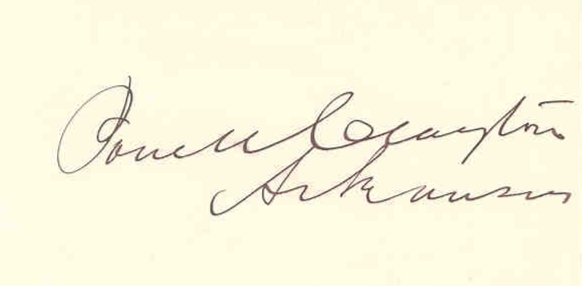 Powell Clayton
Arkansas